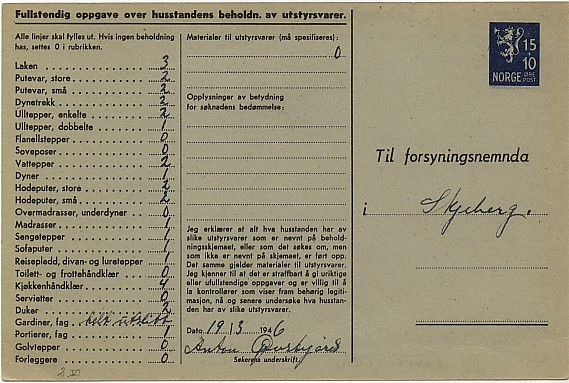 Fullstendig oppgave over husstandens beholdn. av utstyrsvarer.
Alle linjer skal fylles ut. Hvis ingen beholdning
has, settes 0 i rubrikken.
Laken 3
Putevar, store 2
Putevar, små 2
Dynetrekk 2
Ulltepper, enkelte 2
Ulltepper, dobbelte 1
Flanellstepper 0
Soveposer 0
Vattepper 2
Dyner 1
Hodeputer, store 2
Hodeputer, små 2
Overmadrasser, underdyner 0
Madrasser 1
Sengetepper 1
Sofaputer 1
Reisepledd, divan- og luretepper 1
Toilett- og frottehåndklær 0
Kjøkkenhåndklær 4
Servietter 0
Duker 2
Gardiner, fag helt utslitt
Portierer, fag 1
Golvtepper 0
Forleggere 0
Materialer til utstyrsvarer (må spesifiseres):
0
Opplysninger av betydning
for søknadens bedømmelse:
Jeg erklærer at alt hva husstanden har av
slike utstyrsvarer som er nevnt på behold-
ningsskjemaet, eller som det søkes om, men
som ikke er nevnt på skjemaet, er ført opp.
Det samme gjelder materialer til utstyrsvarer.
Jeg kjenner til at det er straffbart å gi uriktige
eller ufullstendige oppgaver og er villig til å
la kontrollører som viser fram behørig legiti-
masjon, nå og senere undersøke hva husstan-
den har av slike utstyrsvarer.
Dato 19/3 1946
Anton
Søkerens underskrift.
15
+
10
NORGE ØRE
POST
Til forsyningsnemnda
i Skjeberg.